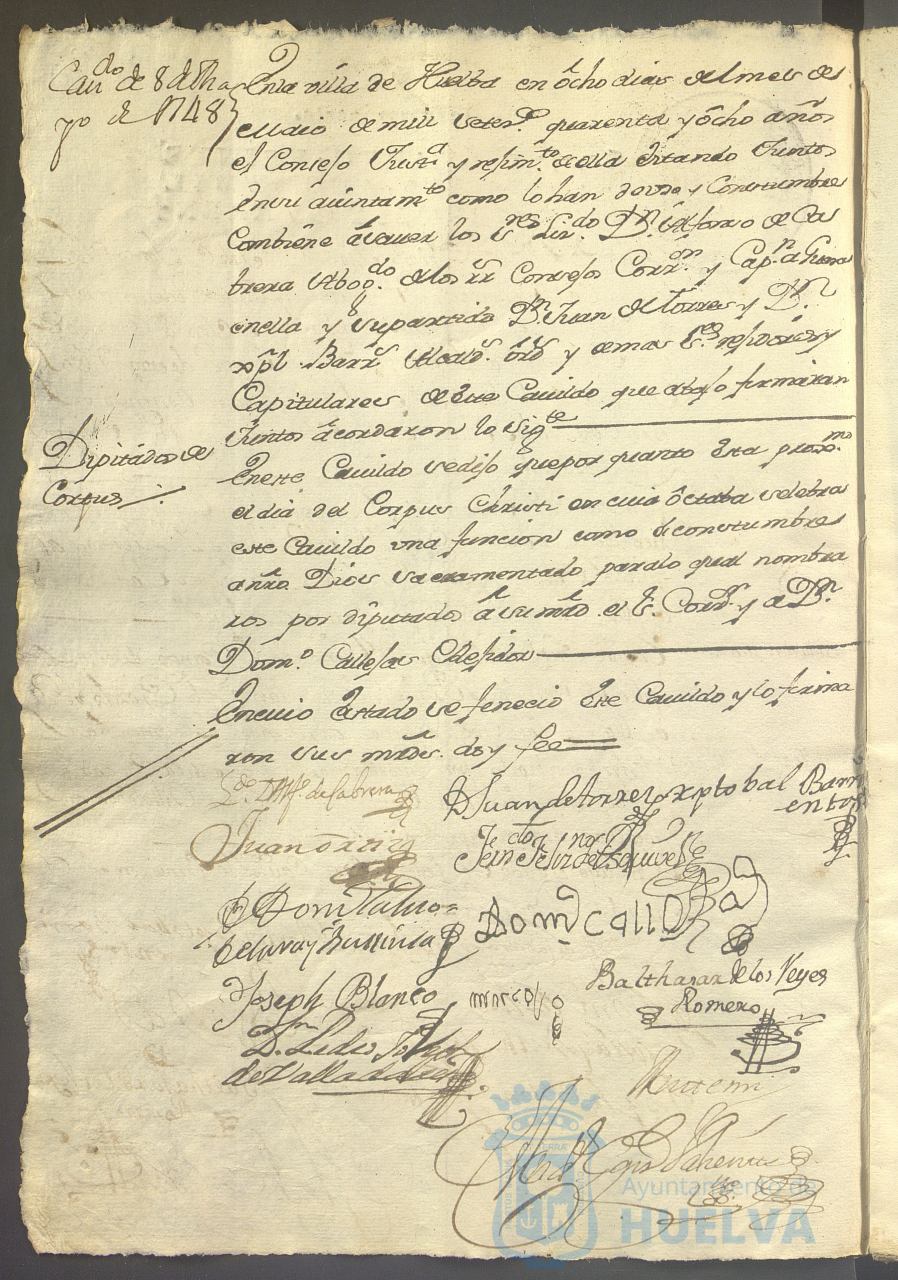 Cau.do de 8 de Ma
yo de 1748
En la villa de Huelba en ocho dias del mes de
Maio de mill setez.s quarenta y ocho años
el Consejo Just.a y rejim.to de ella estando Juntos
en su aiuntam.to como lo han de vso y Constumbre
combiene a sauer los S.res Liz.do D.n Alfonso de Ca
brera Abog.do de los rr Consejos Corr.or y Cap.n a Guerra
en ella y su partido D.n Juan de Torres y D.n
xpl Barr.s Alcald.s ord.s y demas S.res rejidores y
Capitulares de este Cauildo que abajo firmaran
Juntos acordaron lo sig.te
Diputados de
Corpus
En este Cauildo se dijo que por quanto esta prox.mo
el dia del Corpus Christi en cuia octaba selebra
este Cauildo una funcion como de constumbre
a nro Dios sacramentado para lo qual nombra
ron por diputados a su mrd. el S. Corr.or y a D.n
Dom.o Callejas Rejidor
En cuio estado se fenecio este Cauildo y lo firma
ron sus mrdes. doy fee
L.do D. Alf.o de Cabrera
D Juan de torres
xptobal Barri
entos
Juan
D Dom.o
Dom.o Calleja
Joseph Blanco
marcos
Balthasar de los Reyes
Romero
D.n Pedro
de Valladolid
Ante mi
Ayuntamiento de
HUELVA